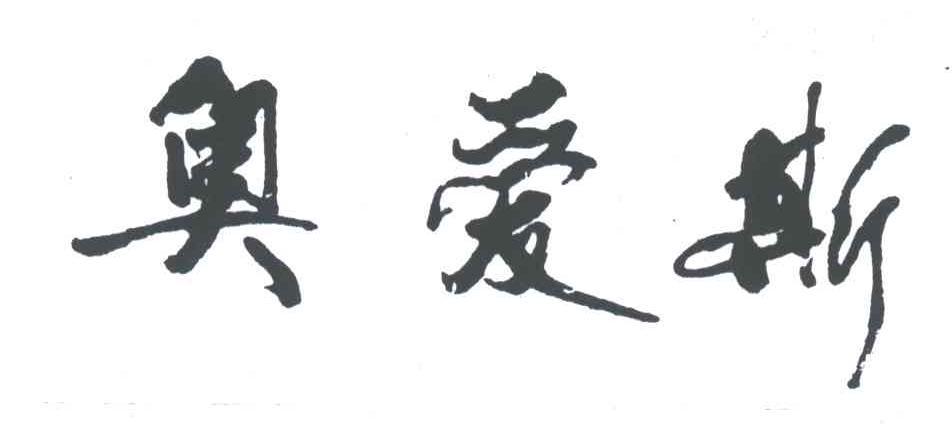 奥爱斯